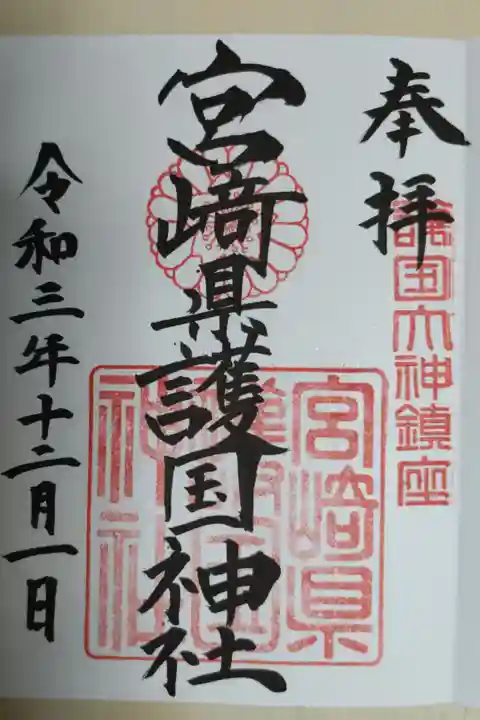 奉拝
護国大神鎮座
宮﨑県護国神社
宮﨑県
護国
神社
令和三年十二月一日